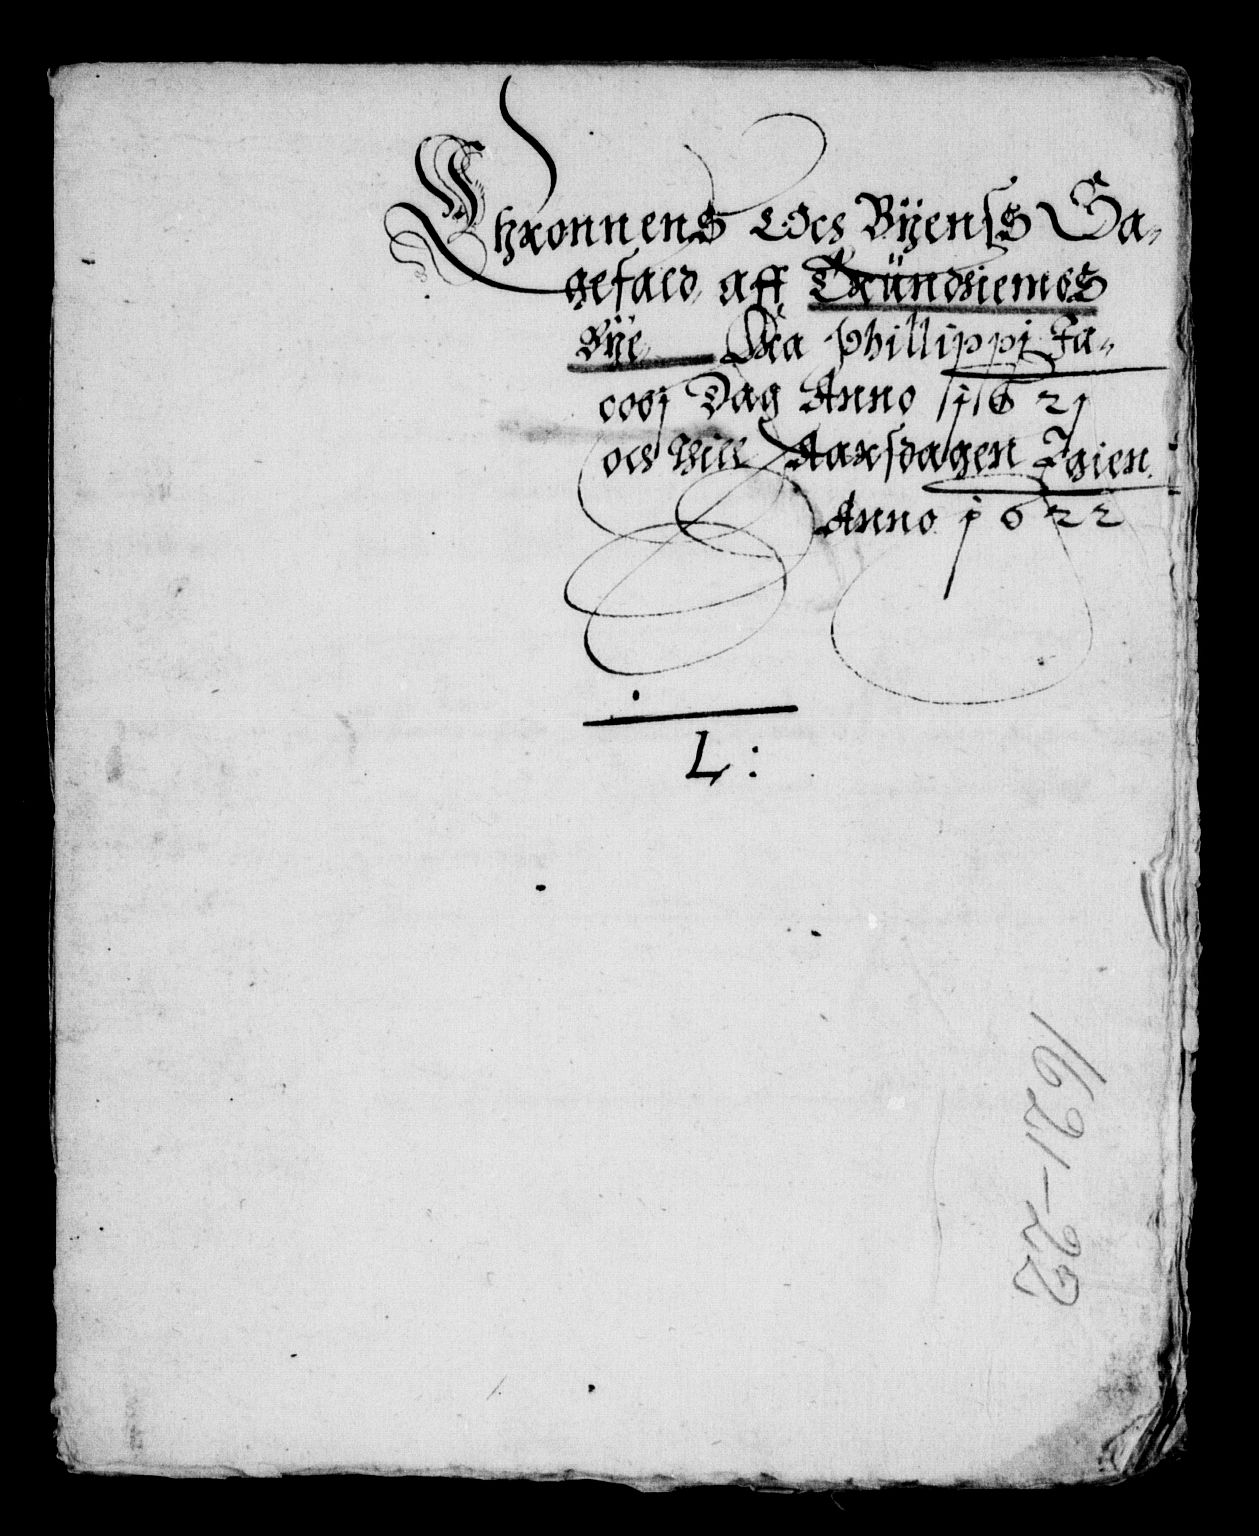 Chronnens Och Byenss Sa-
gefald aff Trundhiembs
Bye Fra Phillippi Ja-
cobj Dag Anno 1621
och thill Aarsdagen Igien
Anno 1622
L:
1621-22